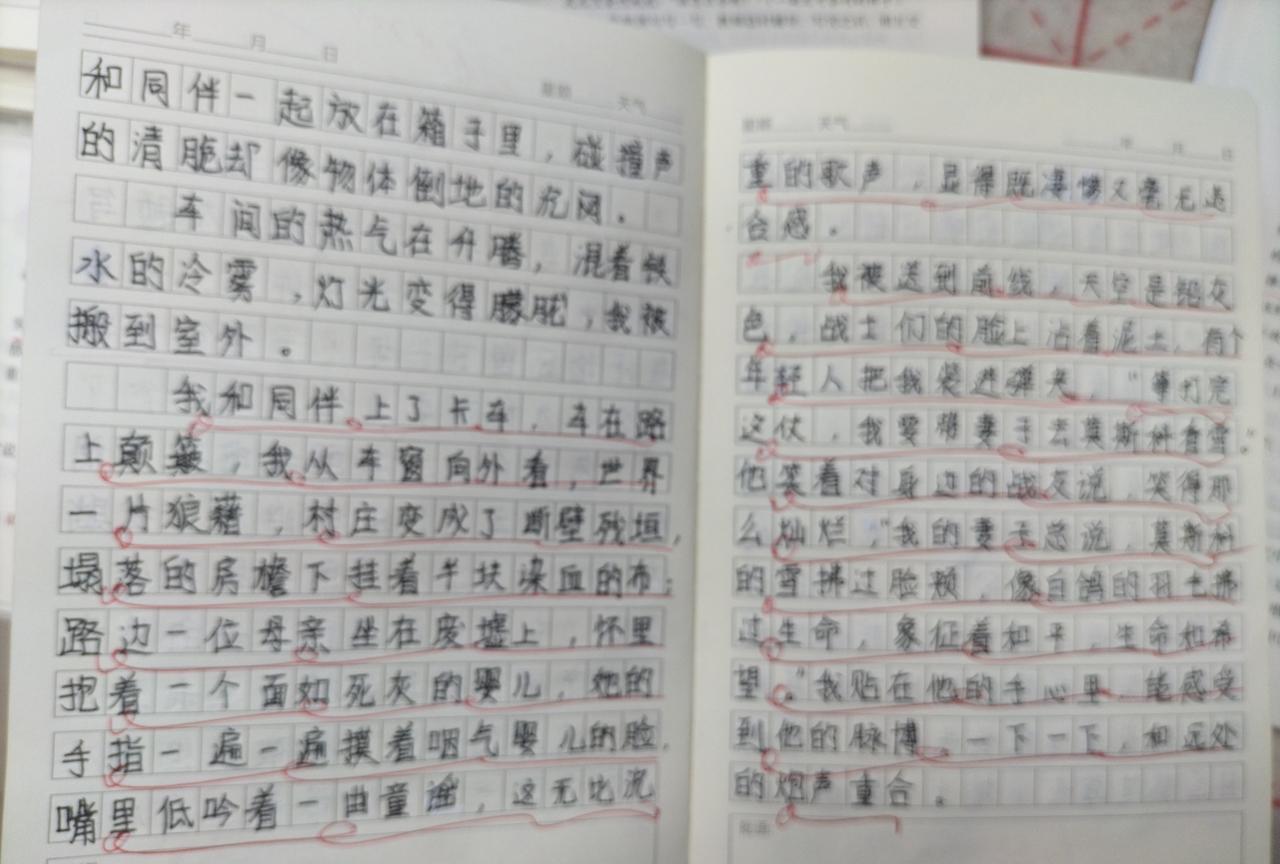 年 月 日
星期 天气
和同伴一起放在箱子里，碰撞声
的清脆却像物体倒地的沉闷。
车间的热气在升腾，混着铁
水的冷雾，灯光变得朦胧，我被
搬到室外。
我和同伴上了卡车，车在路
上颠簸，我从车窗向外看，世界
一片狼藉，村庄变成了断壁残垣，
塌落的房檐下挂着半块染血的布；
路边一位母亲坐在废墟上，怀里
抱着一个面如死灰的婴儿，她的
手指一遍一遍摸着咽气婴儿的脸，
嘴里低吟着一曲童谣，这无比沉
星期 天气
年 月 日
重的歌声，显得既凄惨又毫无违
合感。
我被送到前线，天空是铅灰
色，战士们的脸上沾着泥土，有个
年轻人把我装进弹夹，“等打完
这仗，我要带妻子去莫斯科看雪”。
他笑着对身边的战友说，笑得那
么灿烂，“我的妻子总说，莫斯科
的雪拂过脸颊，像白鸽的羽毛拂
过生命，象征着和平，生命和希
望。”我贴在他的手心里，能感受
到他的脉搏，一下一下，和远处
的炮声重合。